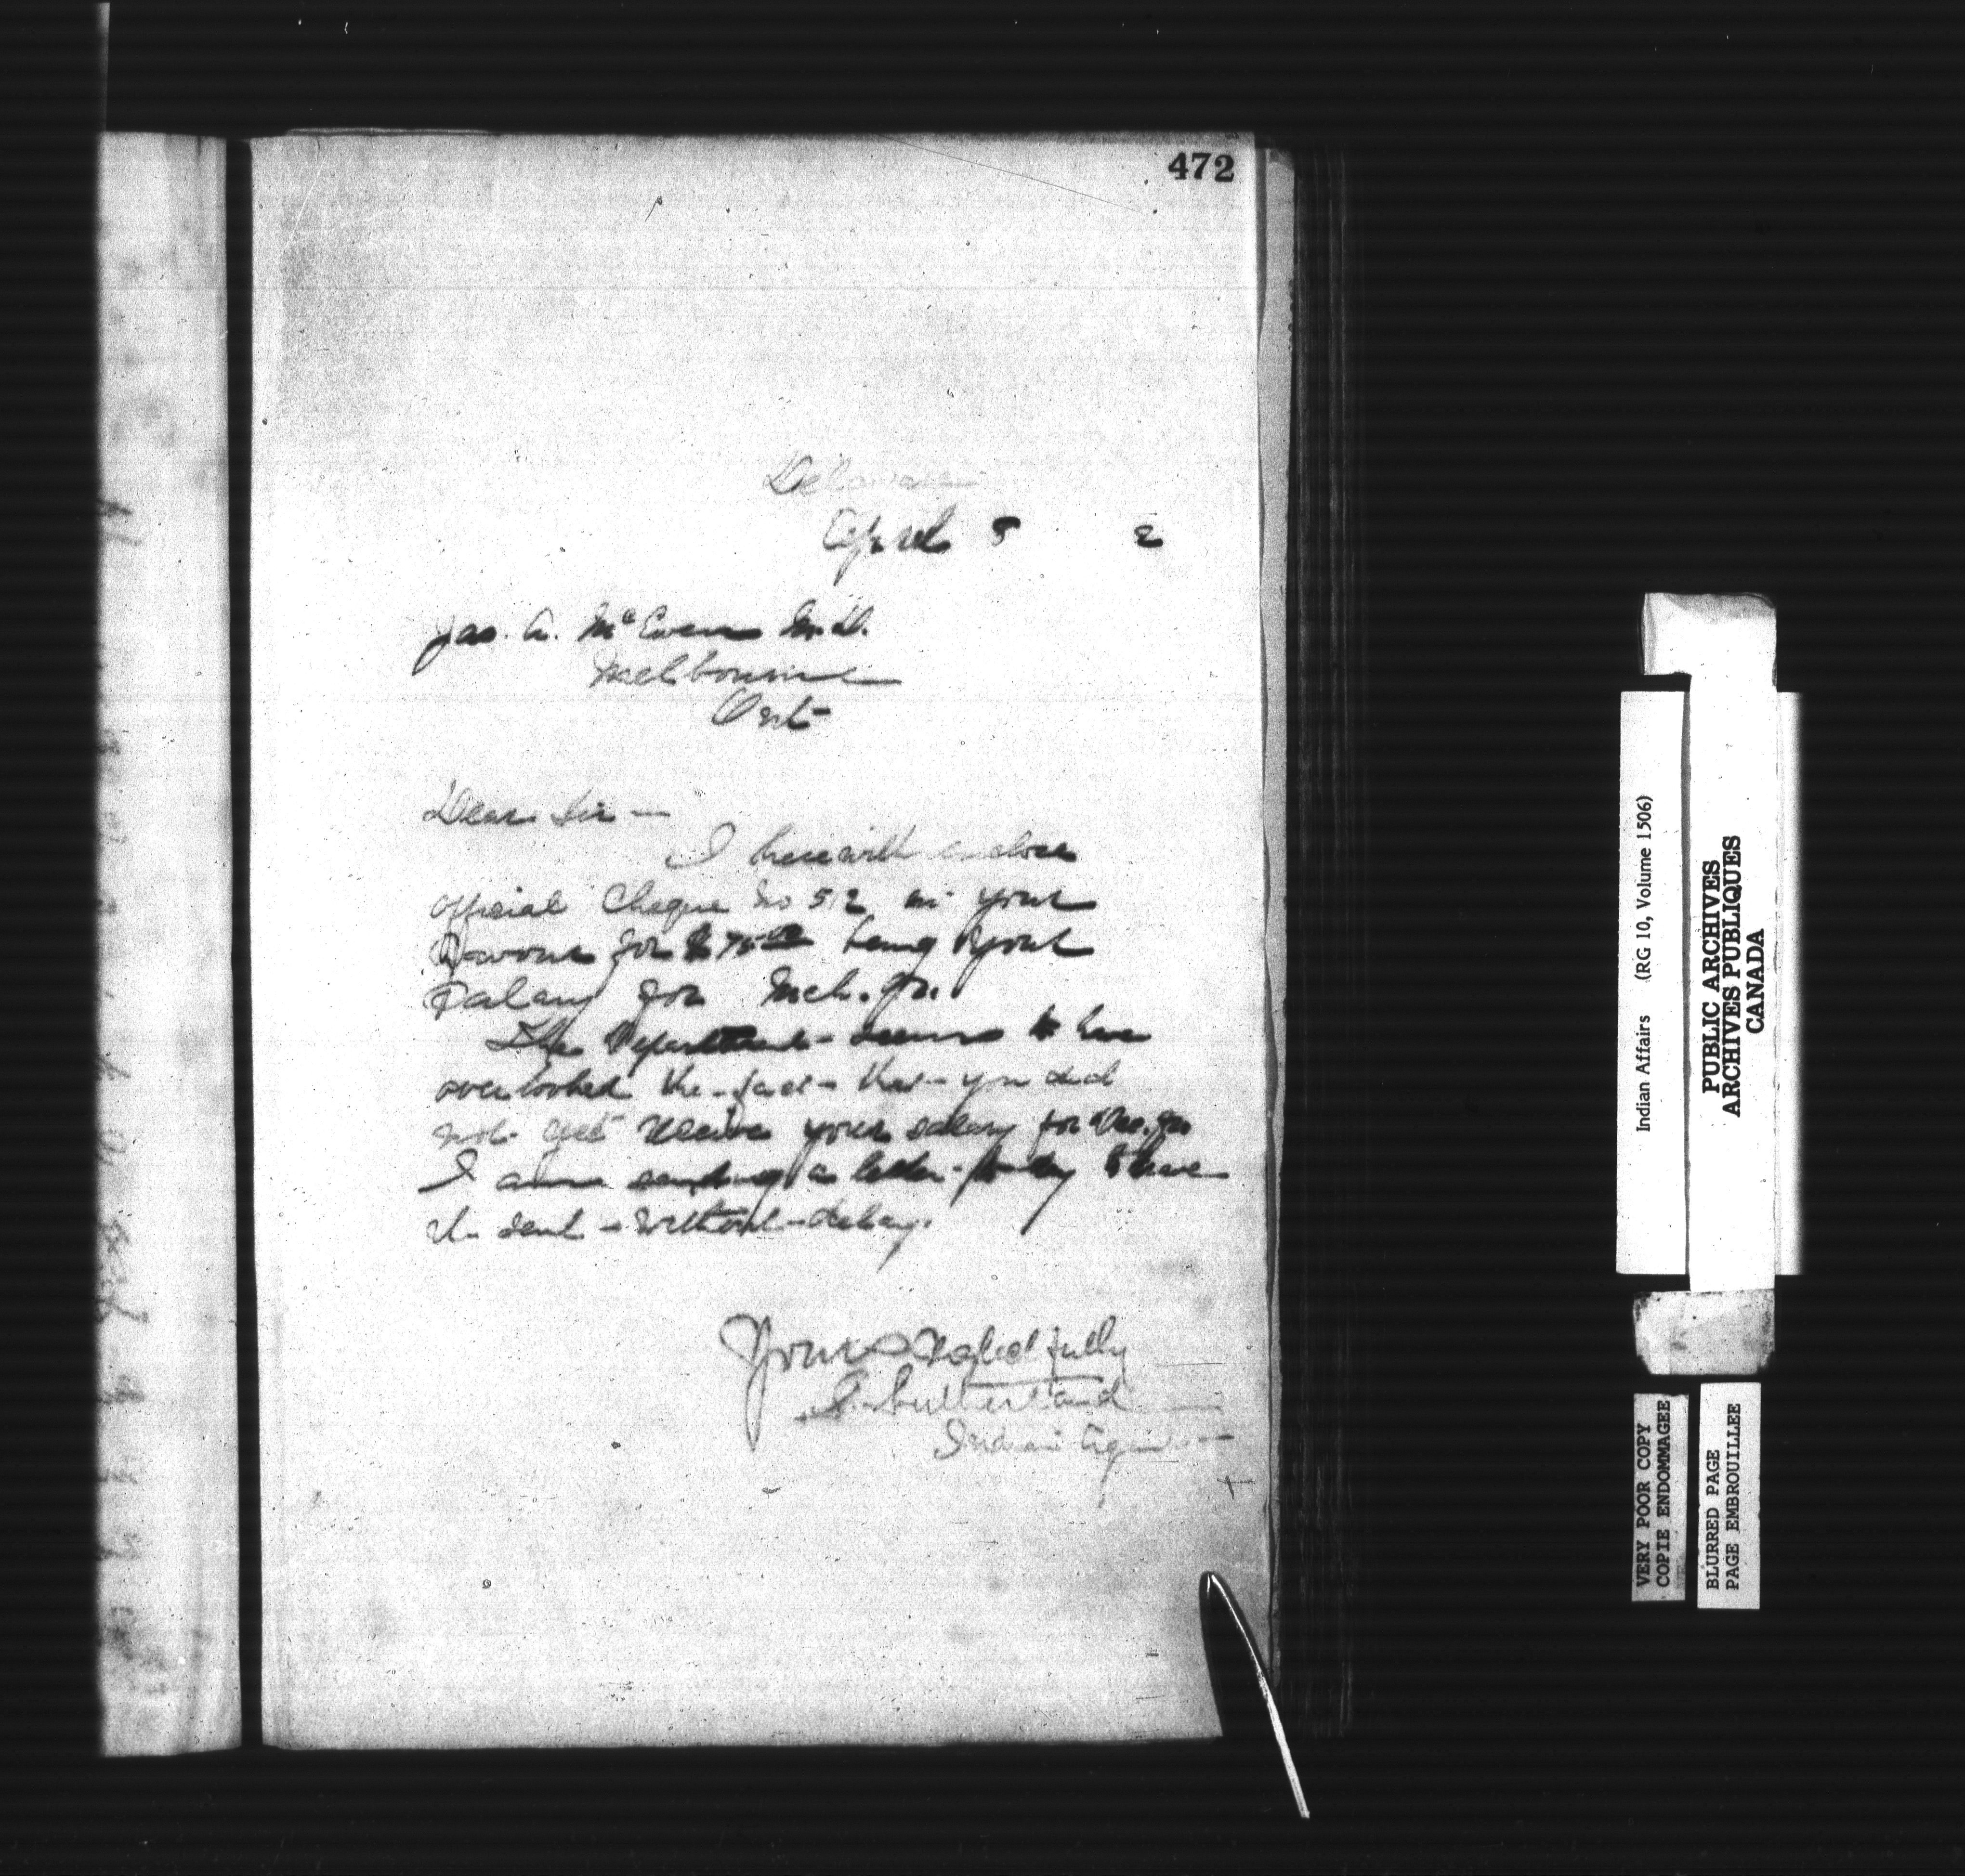 472
Delaware
April 5 2
Jas. A. McEwen M.D.
Melbourne
Ont
Dear Sir —
I herewith enclose
official Cheque No 512 in your
favour for $75.00 being your
Salary for Mch. qr.
The Department seems to have
overlooked the fact that you did
not get receive your salary for Dec. qr.
I am sending a letter to day to have
it sent without delay.
Yours Respectfully
S. Sutherland
Indian Agent
Indian Affairs (RG 10, Volume 1506)
PUBLIC ARCHIVES
ARCHIVES PUBLIQUES
CANADA
VERY POOR COPY
COPIE ENDOMMAGEE
BLURRED PAGE
PAGE EMBROUILLEE